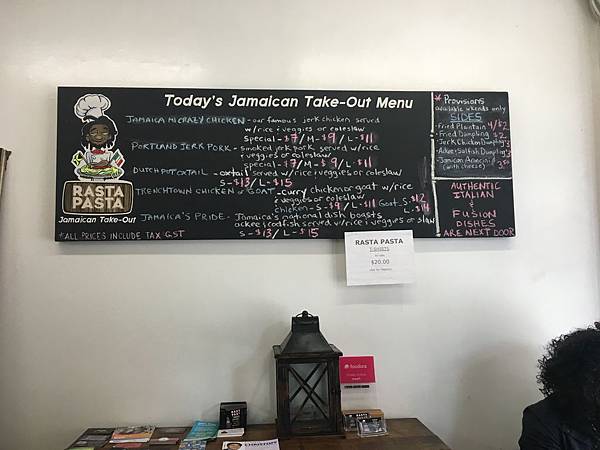 Today's Jamaican Take-Out Menu
JAMAICA MI CRAZY CHICKEN - our famous jerk chicken served
w/rice & veggies or coleslaw
special - $7 / M - $9 / L - $11
PORTLAND JERK PORK - smoked jerk pork served w/rice
& veggies or coleslaw
special - $7 / M - $9 / L - $11
DUTCH POT OXTAIL - oxtail served w/rice & veggies or coleslaw
S - $13 / L - $15
TRENCHTOWN CHICKEN or GOAT - curry chicken or goat w/ rice
& veggies or coleslaw
Chicken - S - $9 / L - $11 Goat - S - $12
L - $14
JAMAICA'S PRIDE - Jamaica's national dish boasts
ackee & codfish served w/rice & veggies or slaw
S - $13 / L - $15
*ALL PRICES INCLUDE TAX GST
RASTA
PASTA
Jamaican Take-Out
* Provisions
available wkends only
SIDES
- Fried Plantain 4/$2
- Fried Dumpling $2
- Jerk Chicken Dumpling $3
- Ackee & Saltfish Dumpling $3
(with cheese)
AUTHENTIC
ITALIAN
&
FUSION
DISHES
ARE NEXT DOOR
RASTA PASTA
T-SHIRTS
$20.00
foodora